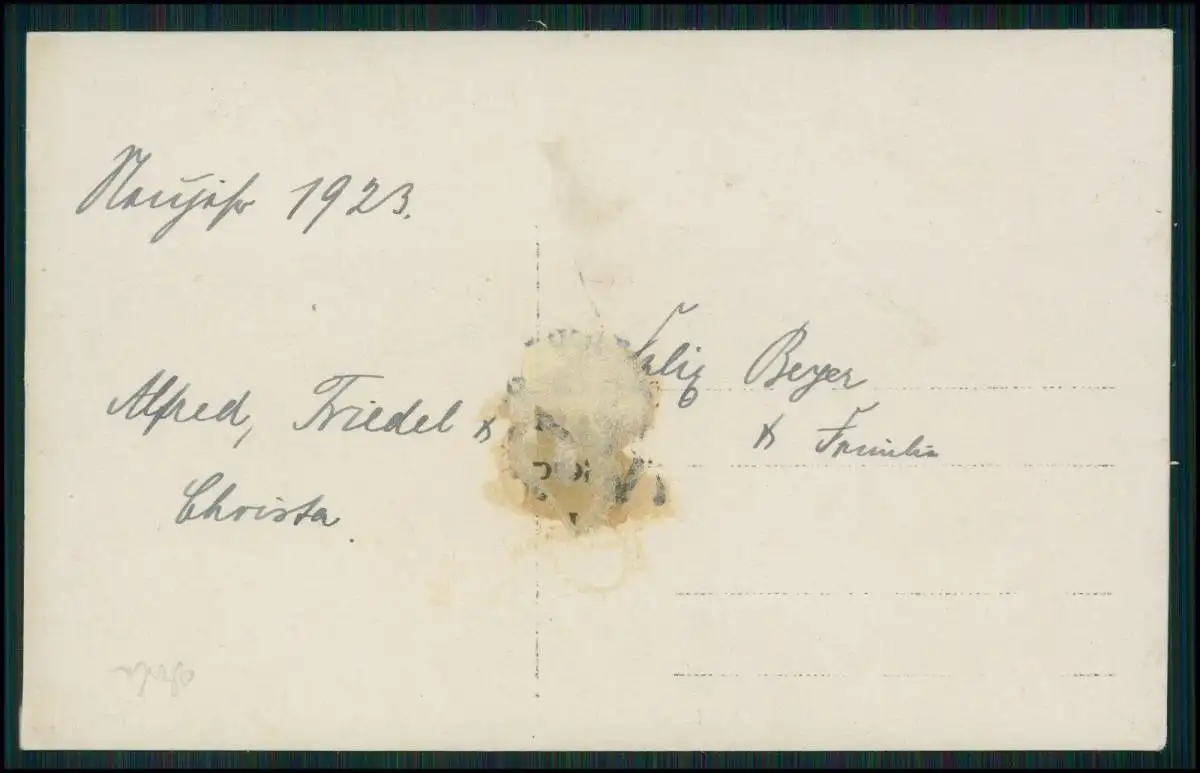 Neujahr 1923.
Alfred, Friedel &
Christa.
Felix Beyer
& Familie